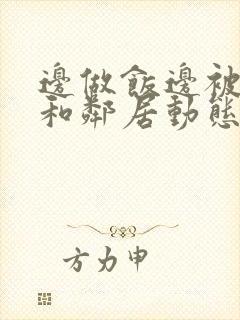 邊做飯邊被
和鄰居動態
方力申